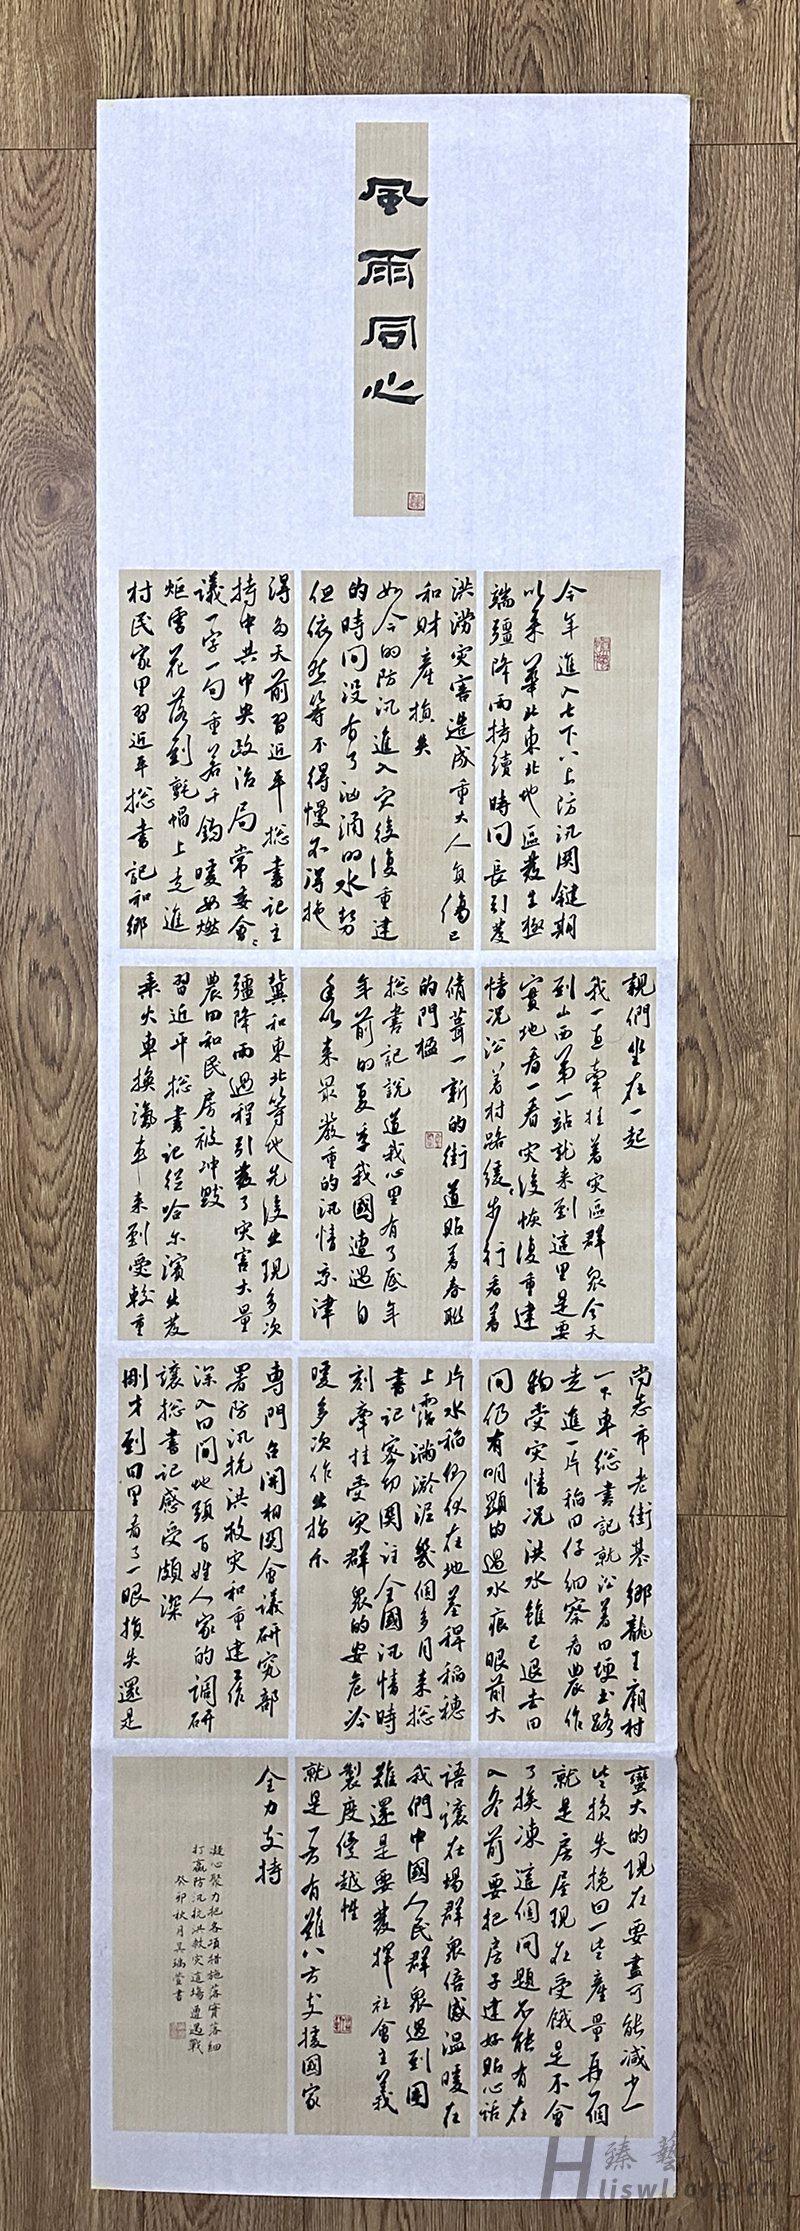 風雨同心
今年進入七下八上防汛関鍵期
以来華北東北地區發生極
端彊降雨持續時间長引發
洪澇灾害造成重大人負傷已
和財產損失
如今的防汛進入灾後復重建
的時间没有了汹涌的水勢
但依然等不得慢不得拖
得多天前習近平総書记主
持中共中央政治局常委會
議一字一句重若千鈞暖如燃
炬雪花落到氈帽上走進
村民家里習近平総書记和鄉
親們坐在一起
我一直牽挂着灾區群衆今天
到山西第一站就来到這里是要
實地看一看灾後恢復重建
情况沿着村路緩步行看着
脩葺一新的街道貼着春聯
的門楹
総書记說道我心里有了底年
年前的夏季我國遭遇自
来最嚴重的汛情京津
冀和東北等地先後出现多次
彊降雨過程引發了灾害大量
農田和民房被冲毁
習近平総書记從哈尔濱出發
乘火車换汽車来到受較重
尚志市老街基鄉龍王廟村
一下車総書记就沿着田埂土路
走進一片稲田仔细察看農作
物受灾情况洪水雖已退去田
间仍有明顯的過水痕眼前大
片水稲倒伏在地莖稈稲穗
上霑滿淤泥幾個多月来総
書记密切関注全國汛情時
刻牽挂受灾群衆的安危冷
暖多次作出指示
専門召開相関會議研究部
署防汛抗洪救灾和重建工作
深入田间地頭百姓人家的調研
讓総書记感受頗深
剛才到田里看了一眼損失還是
蠻大的现在要盡可能減少一
些損失挽回一些產量再一個
就是房屋现在受餓是不會
了挨凍這個问題不能有在
入冬前要把房子建好貼心话
語讓在場群衆倍感温暖在
我們中國人民群衆遇到困
難還是要發揮社會主義
製度優越性
就是一方有難八方支援國家
全力支持
凝心聚力把各項措施落實落细
打贏防汛抗洪救灾這場遭遇戰
癸卯秋月吴瑞雪書
臻藝
liswl.org.cn